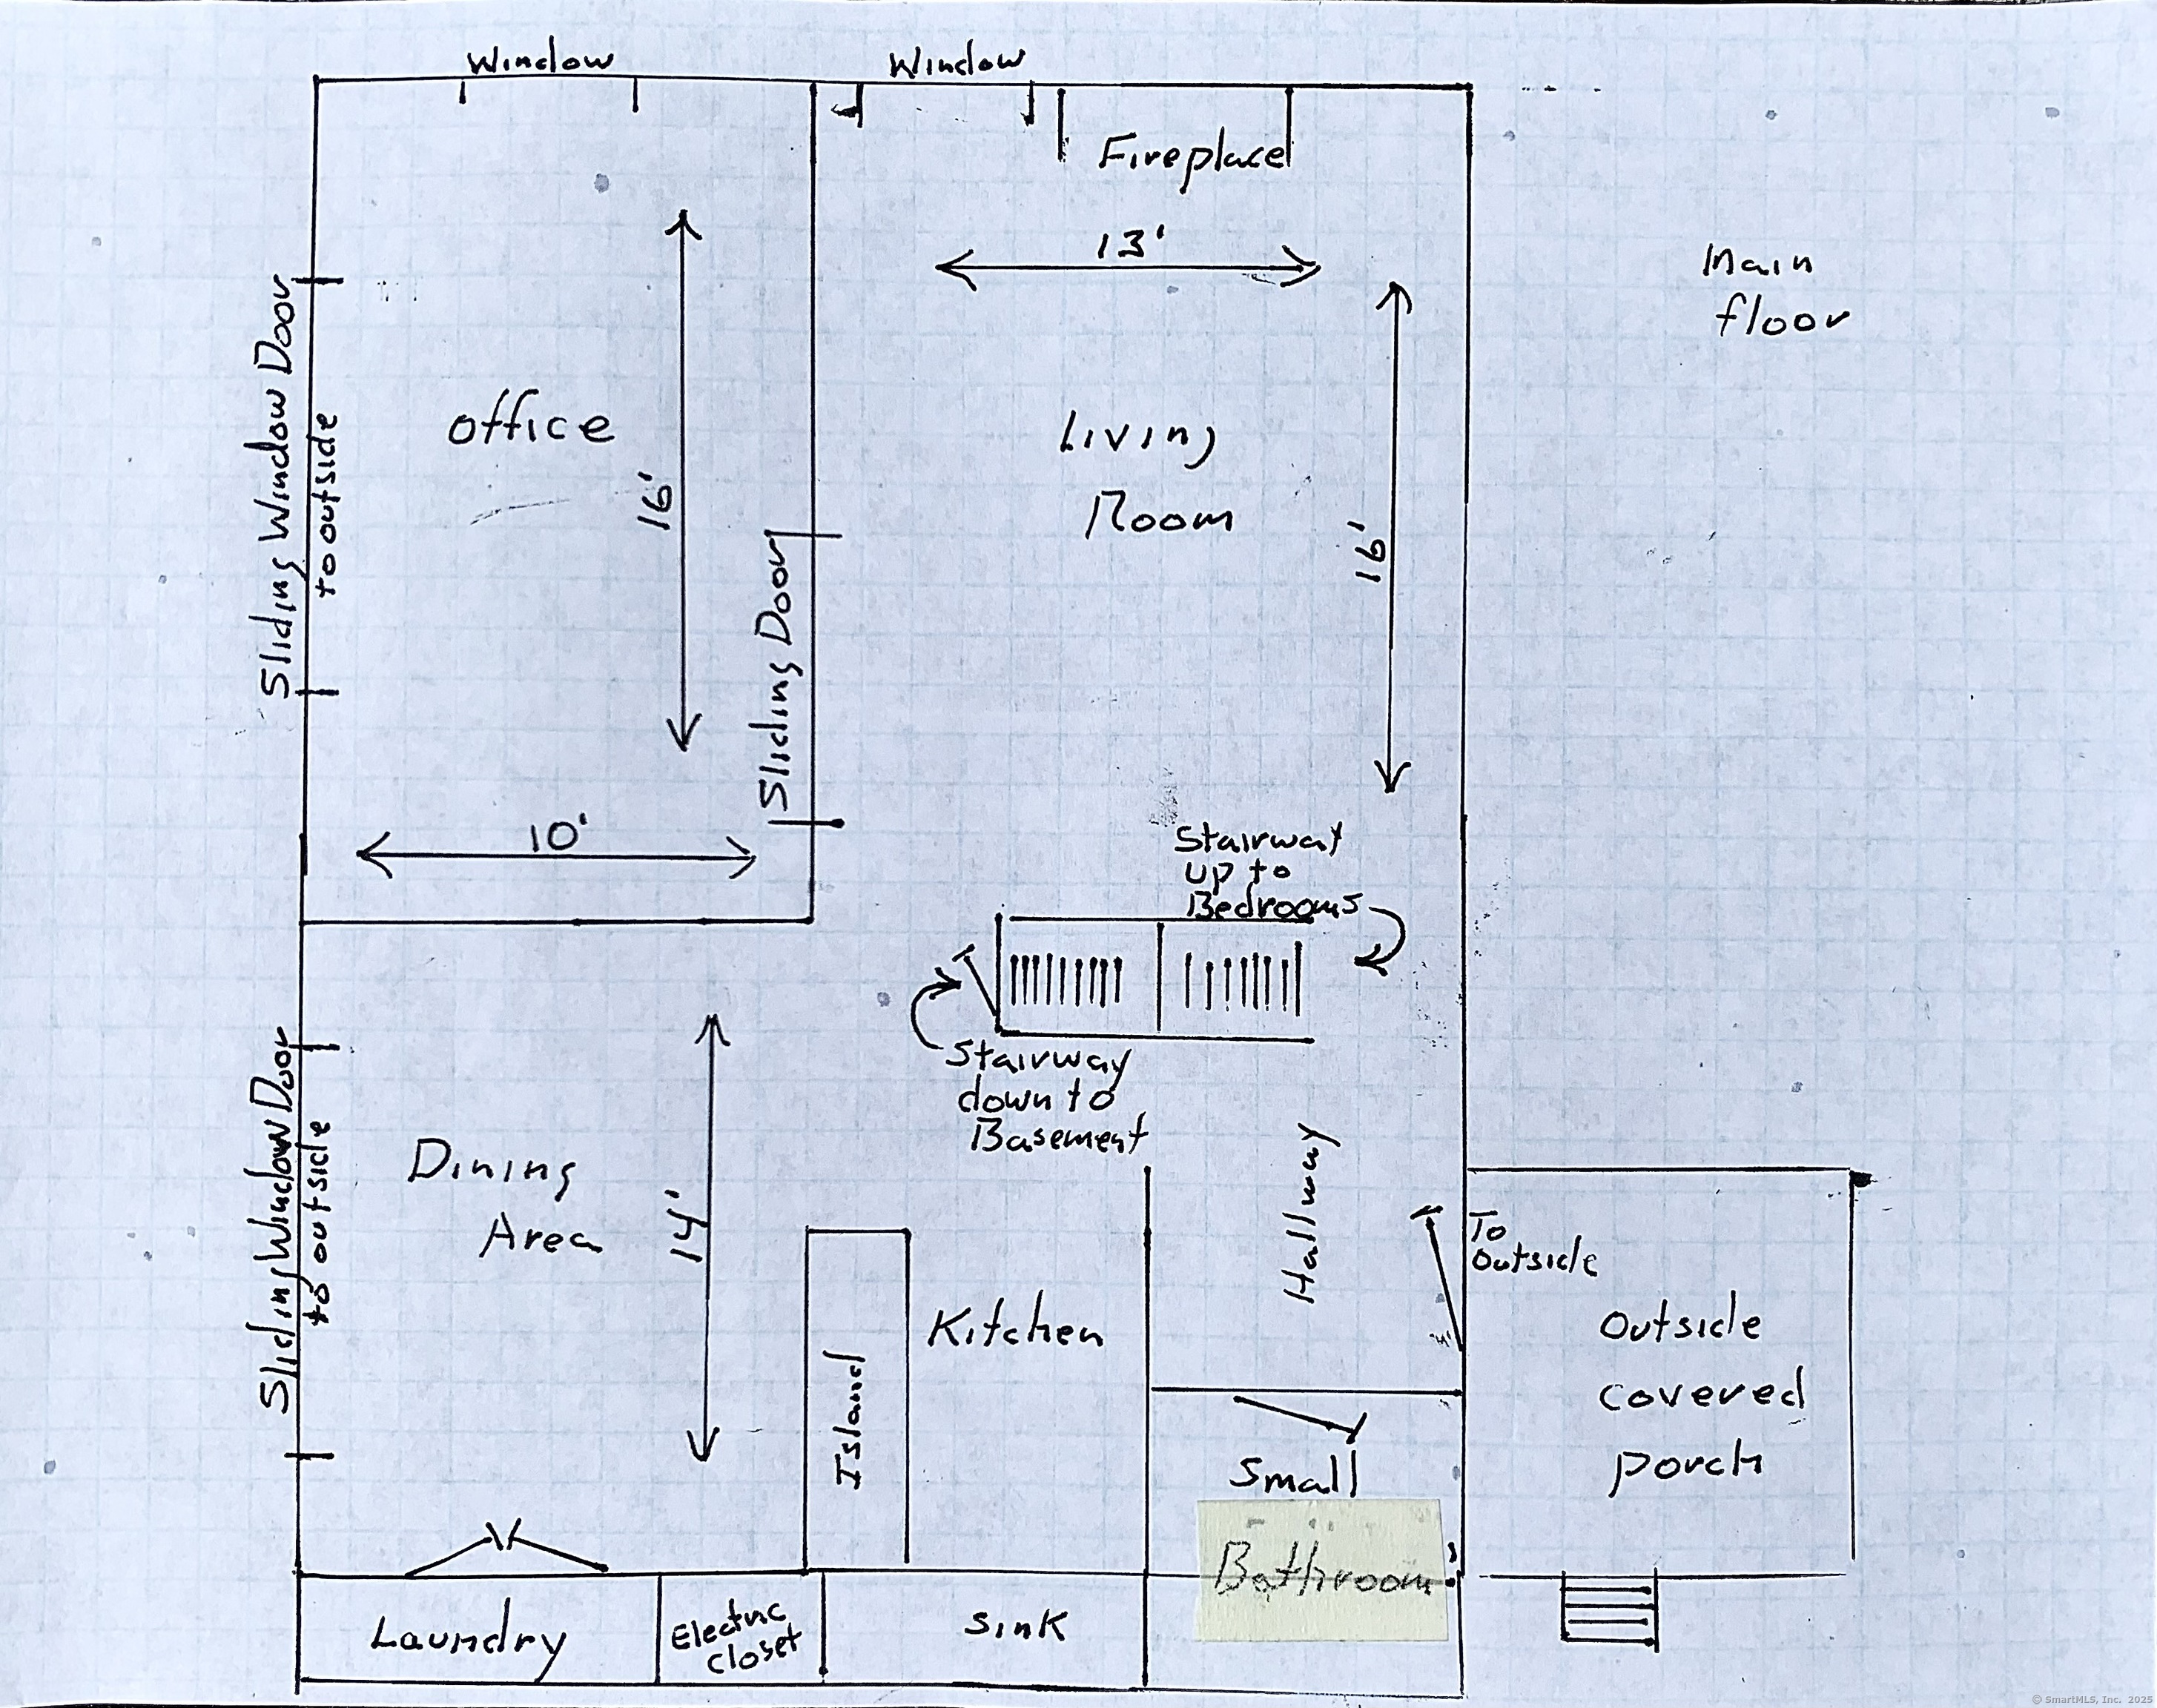 Window
Window
Fireplace
13'
Main
floor
Sliding Window Door
to outside
office
16'
Living
Room
16'
Sliding Door
10'
Stairway
up to
Bedrooms
Stairway
down to
Basement
Sliding Window Door
to outside
Dining
Area
14'
Hallway
To
outside
Island
Kitchen
Outside
covered
porch
Small
Bathroom
Laundry
Electric
closet
Sink
© SmartMLS, Inc. 2025